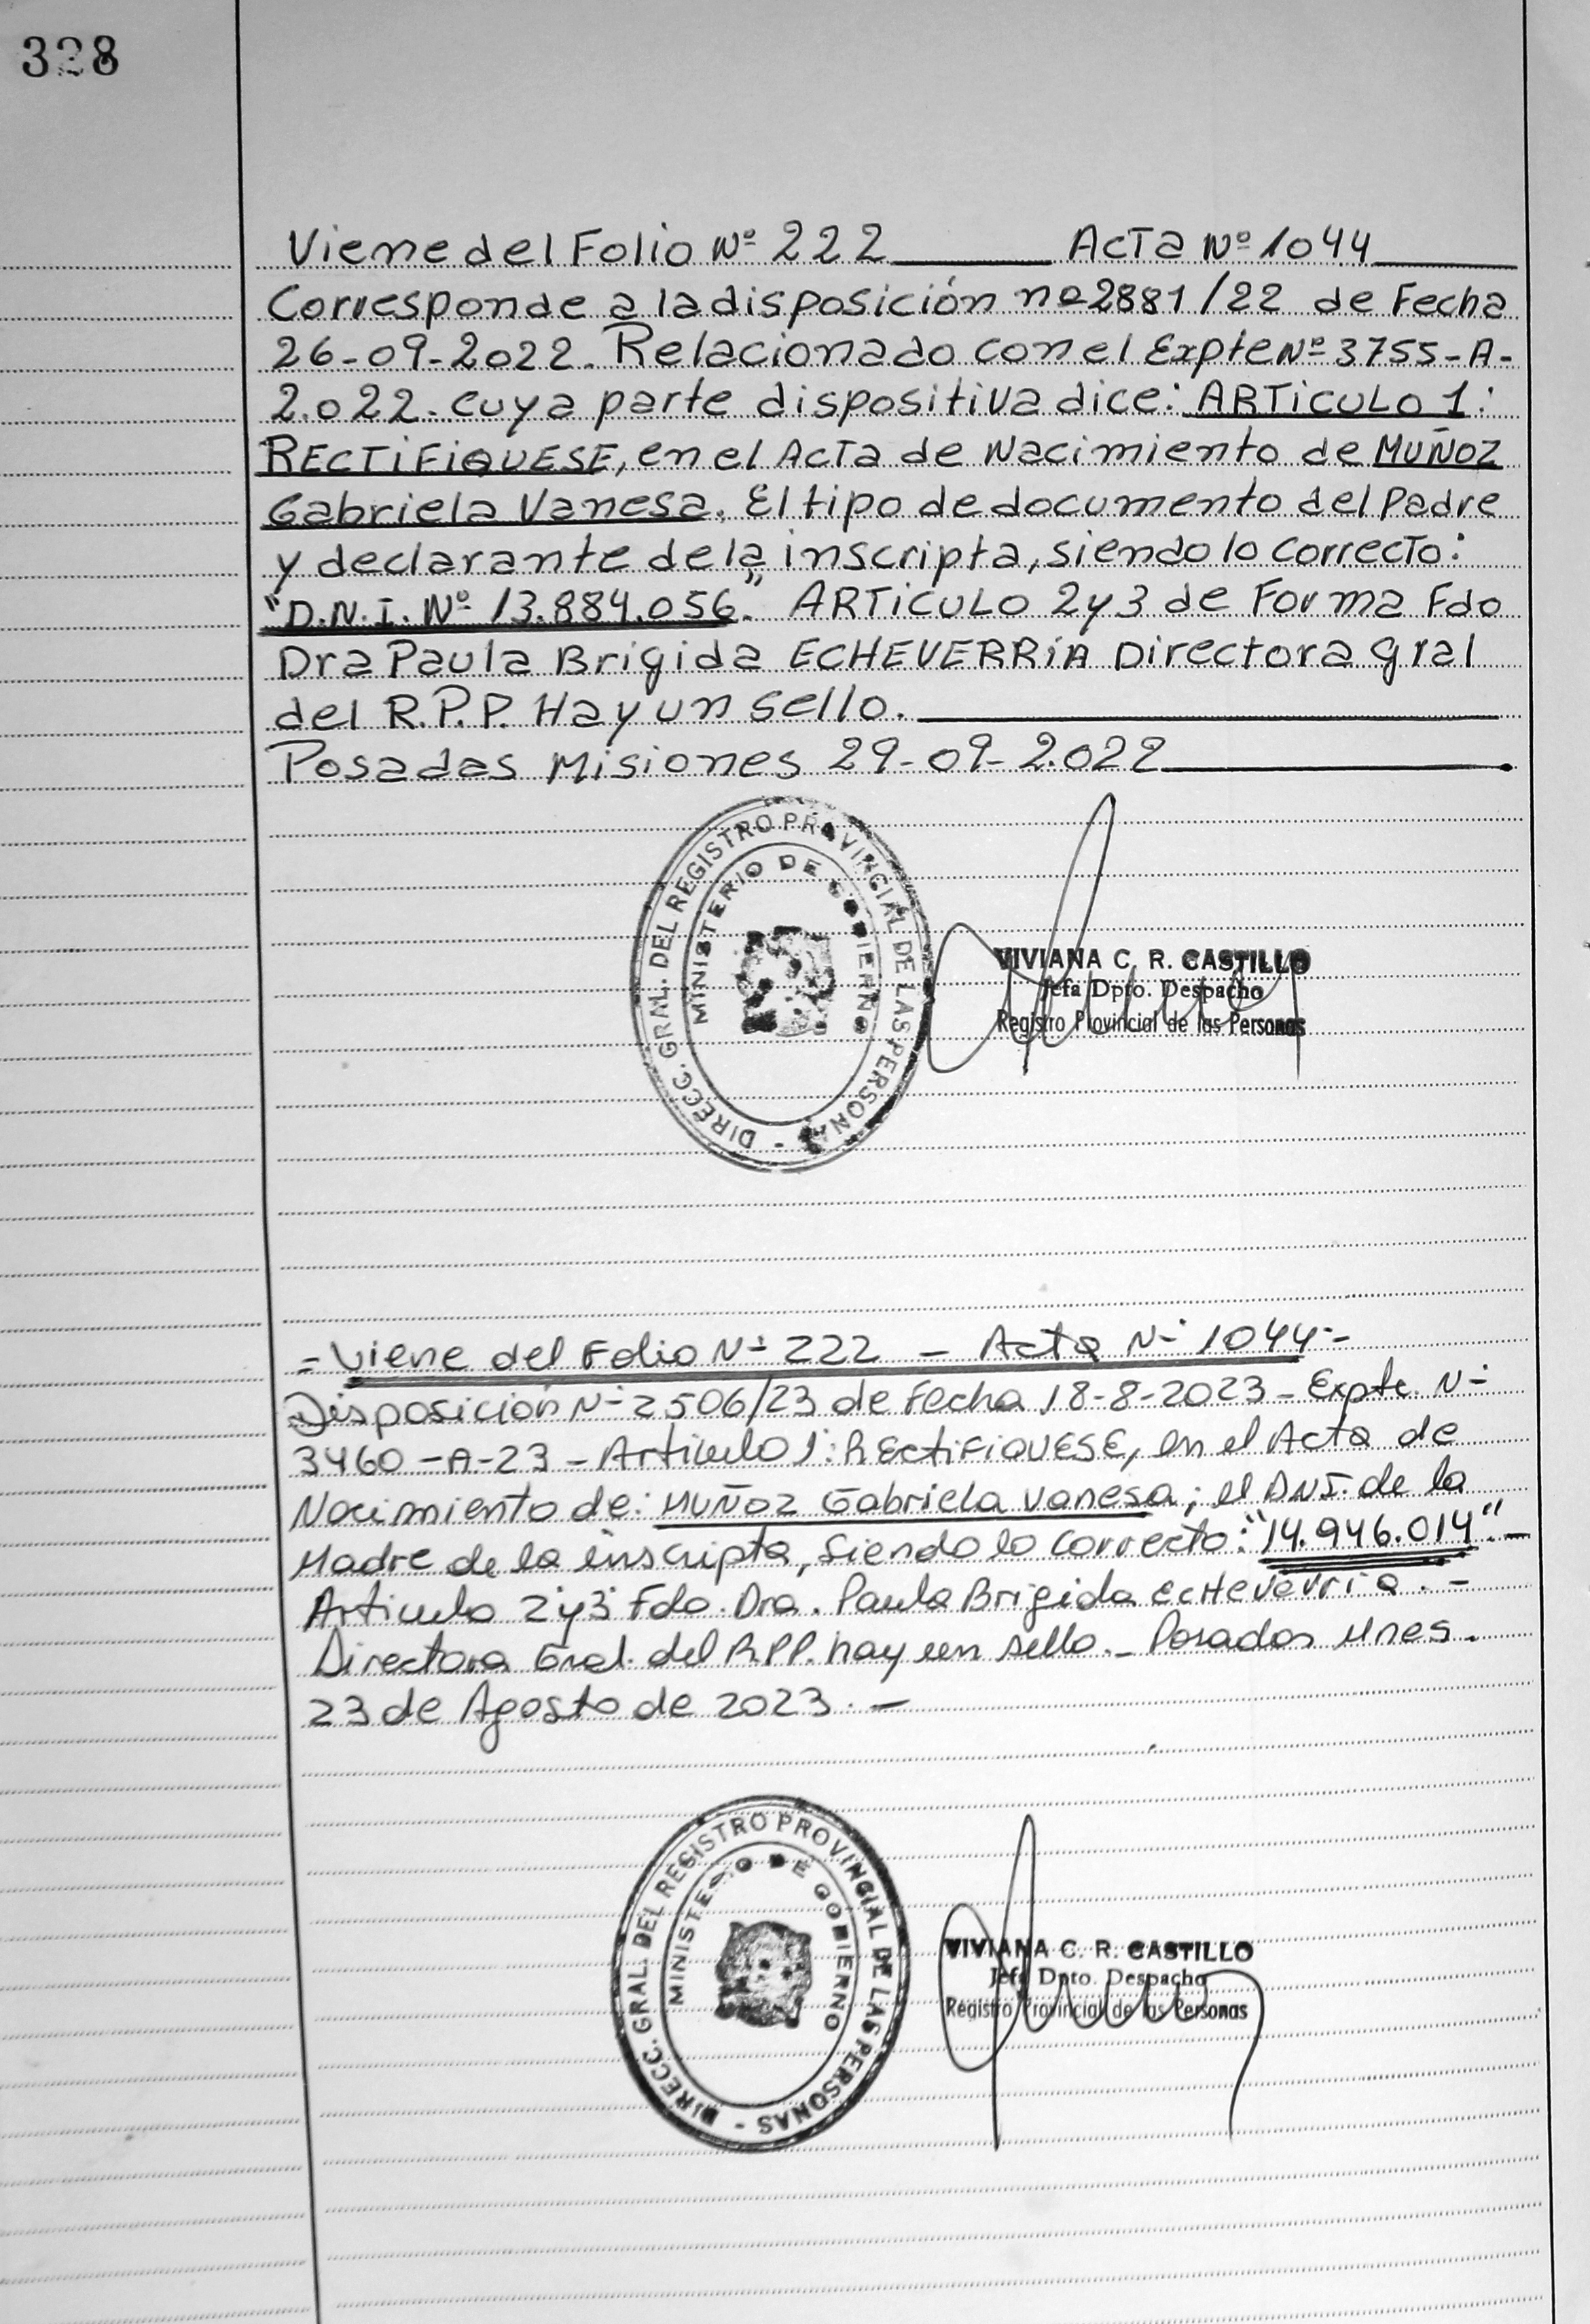 328
Viene del Folio Nº 222 Acta Nº 1044
Corresponde a la disposición nº 2881/22 de Fecha
26-09-2022. Relacionado con el Expte Nº 3755-A-
2.022. cuya parte dispositiva dice: ARTiCULO 1:
RECTiFiQUESE, en el Acta de Nacimiento de MUÑOZ
Gabriela Vanesa. El tipo de documento del Padre
y declarante de la inscripta, siendo lo correcto:
"D.N.I. Nº 13.884.056". ARTiCULO 2 y 3 de Forma Fdo
Dra Paula Brigida ECHEVERRiA Directora gral
del R.P.P. Hay un sello.
Posadas Misiones 29-09-2.022
DIRECC. GRAL. DEL REGISTRO PROVINCIAL DE LAS PERSONAS -
MINISTERIO DE GOBIERNO
VIVIANA C. R. CASTILLO
Jefa Dpto. Despacho
Registro Provincial de las Personas
= Viene del Folio N- 222 - Acta N- 1044-
Disposición N- 2506/23 de Fecha 18-8-2023 - Expte. N-
3460-A-23 - Articulo 1: RECTIFIQUESE, en el Acta de
Nacimiento de: MUÑOZ Gabriela Vanesa; el DNI. de la
Madre de la inscripta, siendo lo correcto: "14.946.014".-
Articulo 2 y 3 Fdo. Dra. Paula Brigida ECHEVERRIA.-
Directora Gral. del R.P.P. hay un sello.- Posadas Mnes.
23 de Agosto de 2023.-
DIRECC. GRAL. DEL REGISTRO PROVINCIAL DE LAS PERSONAS -
MINISTERIO DE GOBIERNO
VIVIANA C. R. CASTILLO
Jefa Dpto. Despacho
Registro Provincial de las Personas